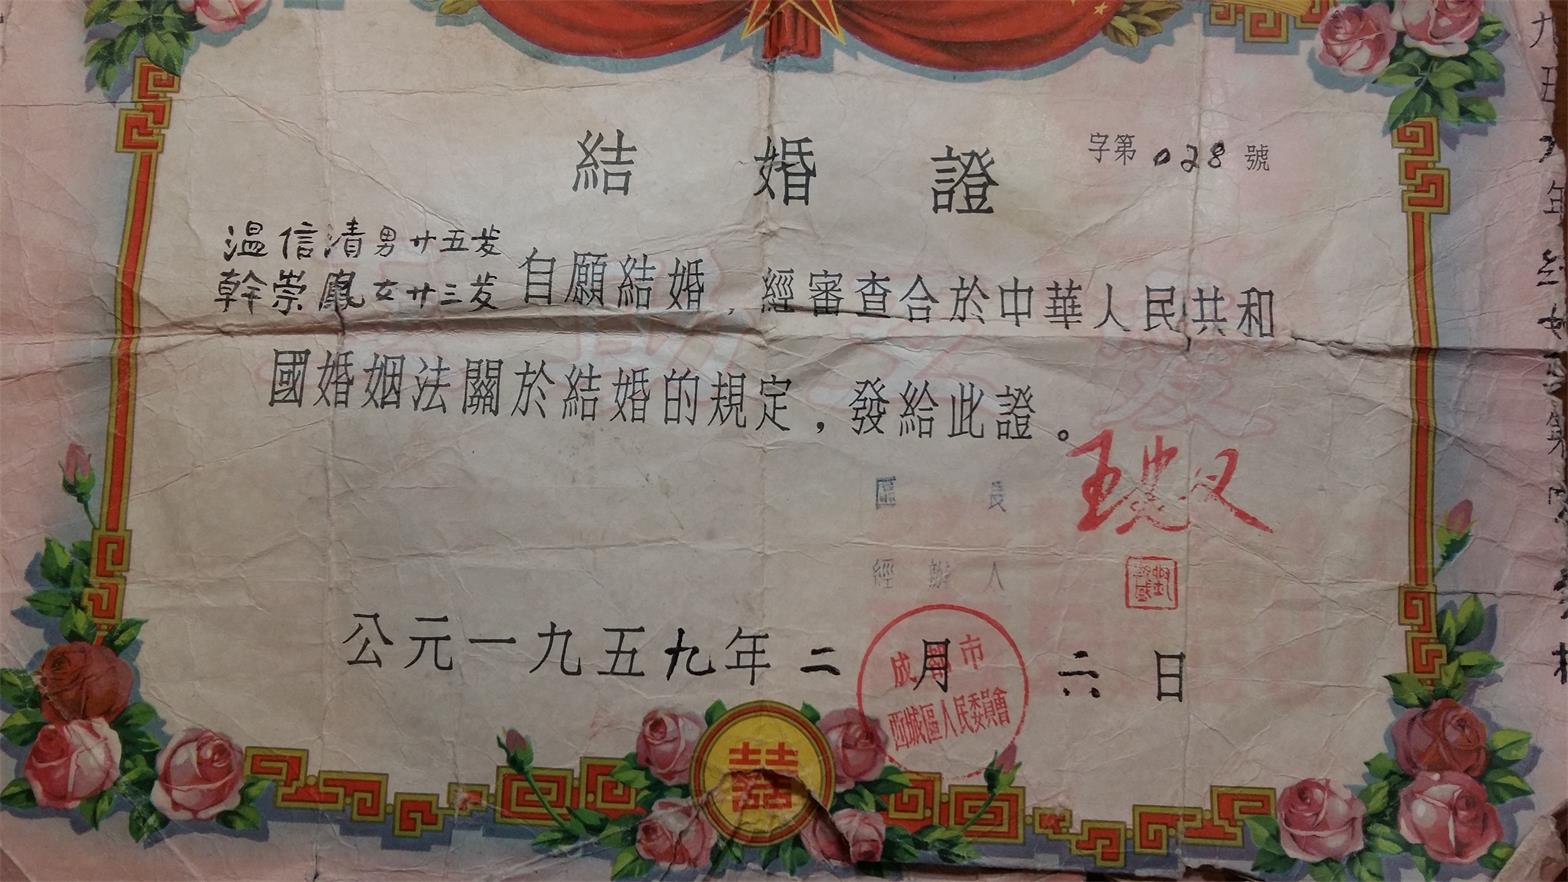 結婚證
字第028號
温信清男廿五岁
幹崇鳳女廿三岁
自願結婚，經審查合於中華人民共和
國婚姻法關於結婚的規定，發給此證。
區長
經辦人
公元一九五九年二月六日
成 市
西城區人民委員會
囍